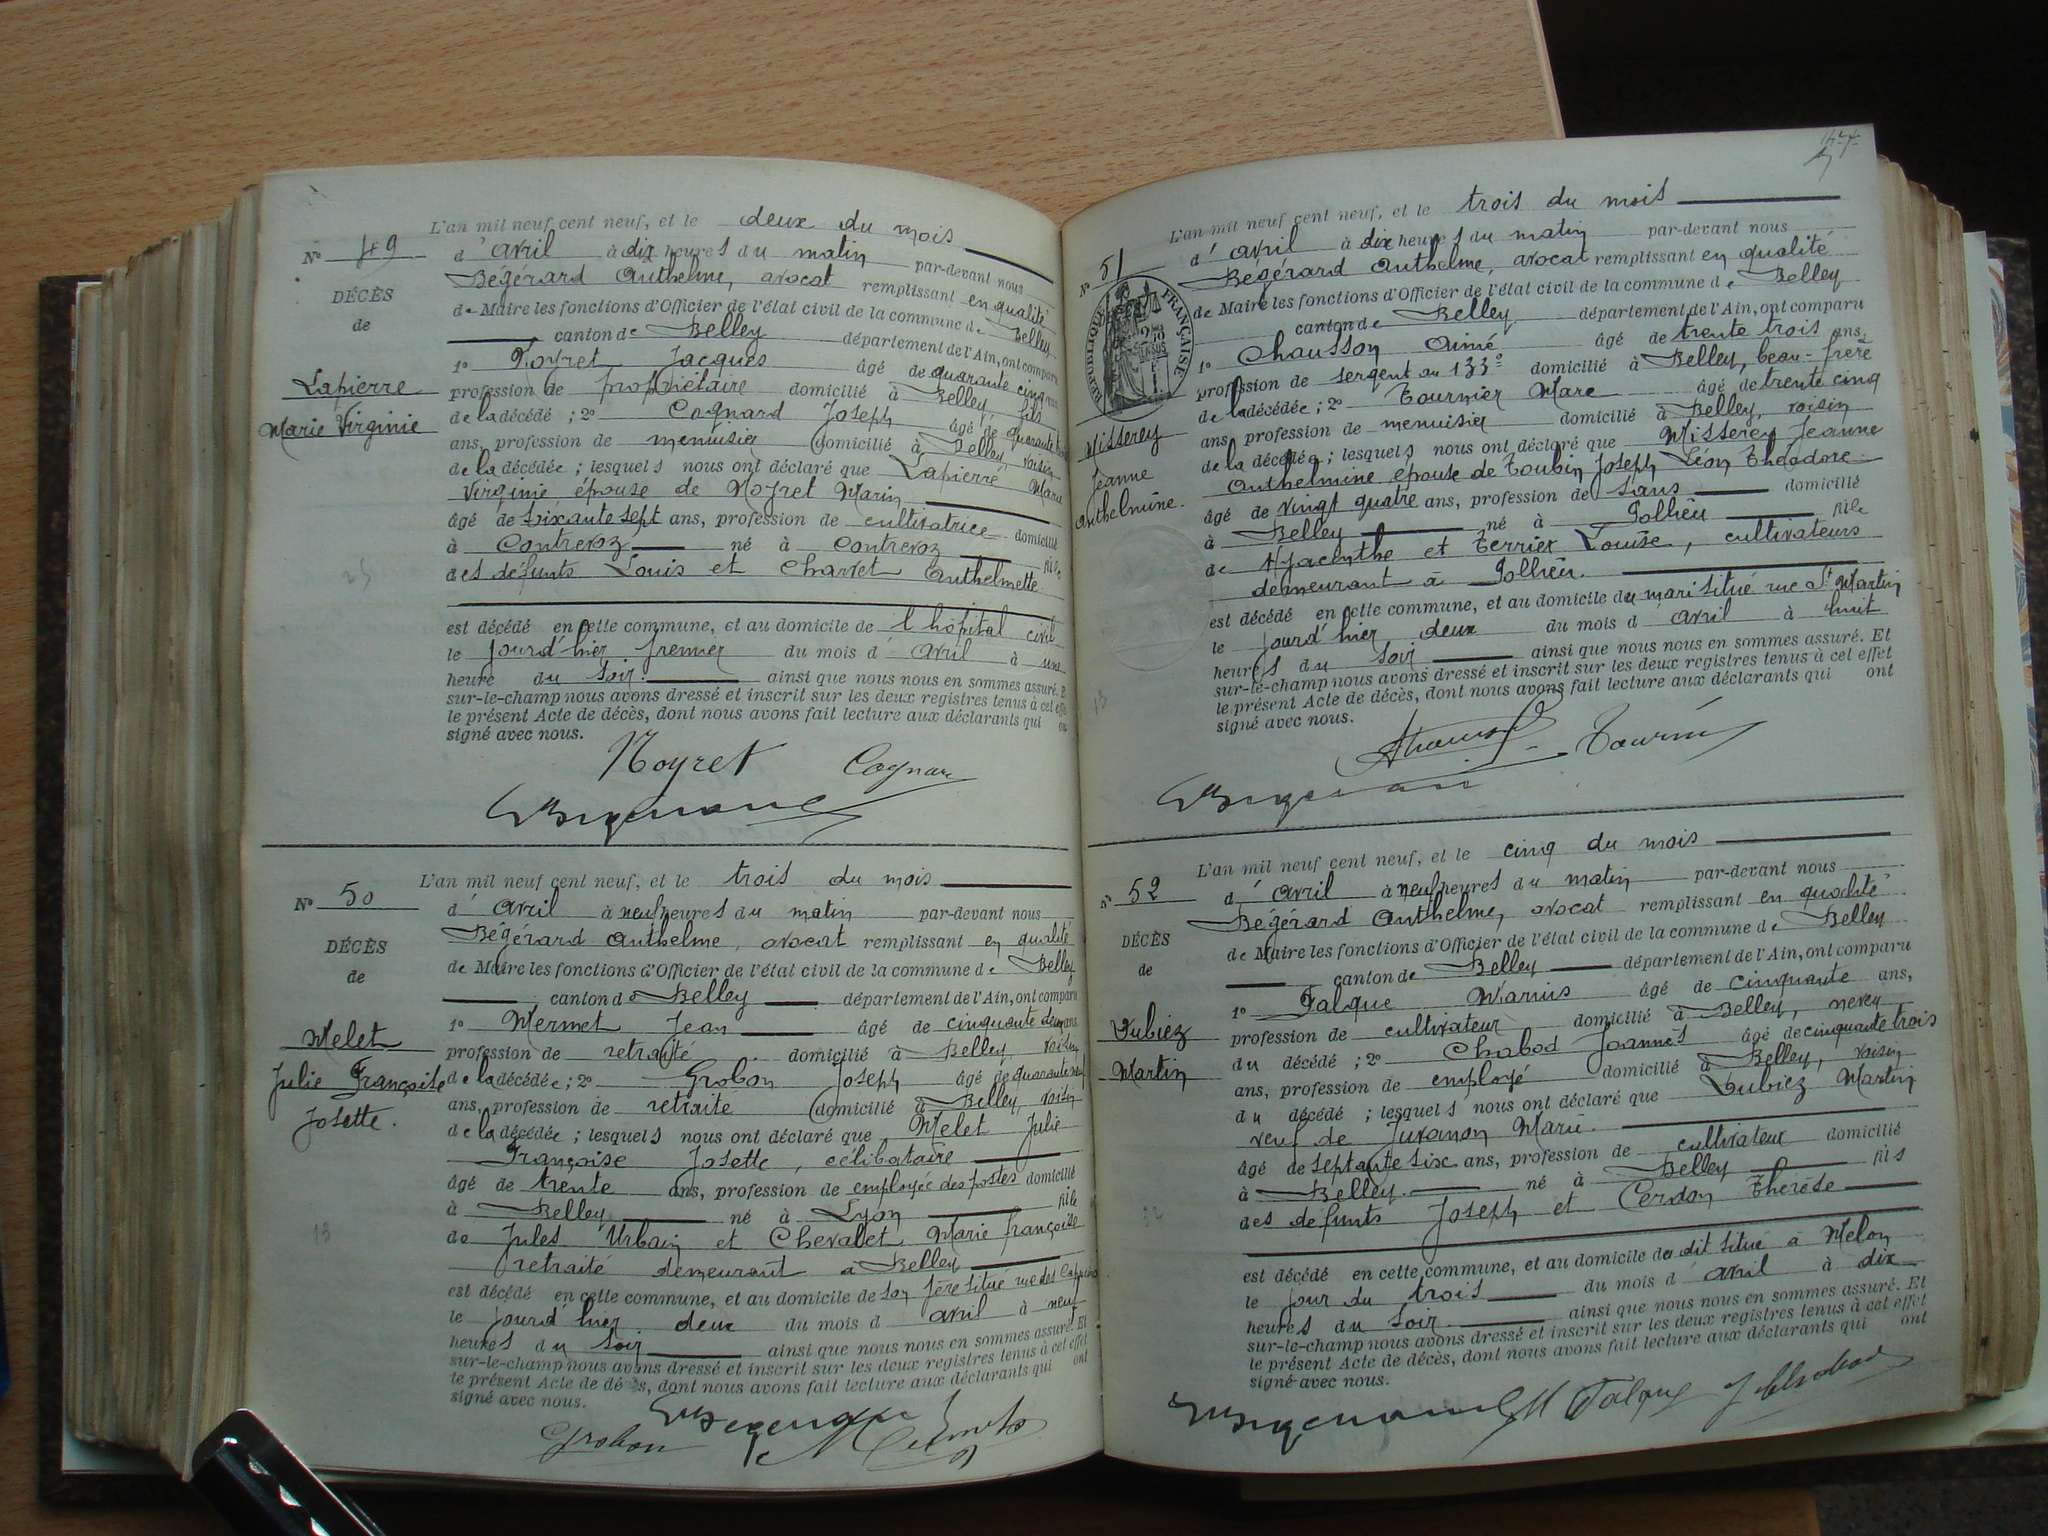 L'an mil neuf cent neuf, et le deux du mois
N° 49 d' avril à dix heures du matin par-devant nous
DÉCÈS
de
Lapierre
Marie Virginie
Bégérard Anthelme, avocat remplissant en qualité
de Maire les fonctions d'Officier de l'état civil de la commune de Belley
canton de Belley département de l'Ain, ont comparu
1° Noyret Jacques âgé de quarante cinq ans
profession de propriétaire domicilié à Belley, fils
de la décédé ; 2° Cognard Joseph âgé de quarante
ans, profession de menuisier domicilié à Belley, voisin
de la décédée ; lesquels nous ont déclaré que Lapierre Marie
Virginie épouse de Noyret Marin
âgé de soixante sept ans, profession de cultivatrice domicilié
à Contrevoz né à Contrevoz fille
des défunts Louis et Charvet Anthelmette.
est décédé en cette commune, et au domicile de l'hôpital civil
le jourd'hier premier du mois d' avril à une
heure du soir. ainsi que nous nous en sommes assuré. E
sur-le-champ nous avons dressé et inscrit sur les deux registres tenus à cet effe
le présent Acte de décès, dont nous avons fait lecture aux déclarants qui on
signé avec nous.
Noyret Cognard
L'an mil neuf cent neuf, et le trois du mois
N° 50 d' avril à neuf heures du matin par-devant nous
DÉCÈS
de
Melet
Julie Françoise
Josette.
Bégérard Anthelme, avocat remplissant en qualité
de Maire les fonctions d'Officier de l'état civil de la commune de Belley
canton de Belley département de l'Ain, ont comparu
1° Mermet Jean âgé de cinquante deux ans
profession de retraité domicilié à Belley, voisin
de la décédée ; 2° Grobon Joseph âgé de quarante neuf
ans, profession de retraité domicilié à Belley, voisin
de la décédée ; lesquels nous ont déclaré que Melet Julie
Françoise Josette, célibataire
âgé de trente ans, profession de employée des postes domicilié
à Belley né à Lyon fille
de Jules Urbain et Chevalet Marie françoise
retraité demeurant à Belley
est décédé en cette commune, et au domicile de son père situé rue des Capucins
le jourd'hier deux du mois d' avril à neuf
heures du soir ainsi que nous nous en sommes assuré. Et
sur-le-champ nous avons dressé et inscrit sur les deux registres tenus à cet effet
le présent Acte de décès, dont nous avons fait lecture aux déclarants qui ont
signé avec nous.
Grobon
L'an mil neuf cent neuf, et le trois du mois
N° 51 d' avril à dix heures du matin par-devant nous
RÉPUBLIQUE FRANÇAISE
Misserey
Jeanne
Anthelmine.
Bégérard Anthelme, avocat remplissant en qualité
de Maire les fonctions d'Officier de l'état civil de la commune de Belley
canton de Belley département de l'Ain, ont comparu
1° Chausson Aimé âgé de trente trois ans,
profession de sergent au 133e domicilié à Belley, beau-frère
de la décédée ; 2° Tournier Marc âgé de trente cinq
ans, profession de menuisier domicilié à Belley, voisin
de la décédée ; lesquels nous ont déclaré que Misserey Jeanne
Anthelmine épouse de Toubin Joseph Léon Théodore
âgé de vingt quatre ans, profession de sans domicilié
à Belley né à Pollieu fille
de Hyacinthe et Terrier Louise, cultivateurs
demeurant à Pollieu.
est décédé en cette commune, et au domicile du mari situé rue St Martin
le jourd'hier deux du mois d' avril à huit
heures du soir ainsi que nous nous en sommes assuré. Et
sur-le-champ nous avons dressé et inscrit sur les deux registres tenus à cet effet
le présent Acte de décès, dont nous avons fait lecture aux déclarants qui ont
signé avec nous.
L'an mil neuf cent neuf, et le cinq du mois
N° 52 d' avril à neuf heures du matin par-devant nous
DÉCÈS
de
Dubiez
Martin
Bégérard Anthelme, avocat remplissant en qualité
de Maire les fonctions d'Officier de l'état civil de la commune de Belley
canton de Belley département de l'Ain, ont comparu
1° Falque Marius âgé de cinquante ans,
profession de cultivateur domicilié à Belley, neveu
du décédé ; 2° Chabod Joannès âgé de cinquante trois
ans, profession de employé domicilié à Belley, voisin
du décédé ; lesquels nous ont déclaré que Dubiez Martin
veuf de Juranon Marie.
âgé de septante six ans, profession de cultivateur domicilié
à Belley. né à Belley fils
des défunts Joseph et Cerdon Thérèse
est décédé en cette commune, et au domicile du dit situé à Melon
le jour du trois du mois d' avril à dix
heures du soir. ainsi que nous nous en sommes assuré. Et
sur-le-champ nous avons dressé et inscrit sur les deux registres tenus à cet effet
le présent Acte de décès, dont nous avons fait lecture aux déclarants qui ont
signé avec nous.
M Falque J Chabod